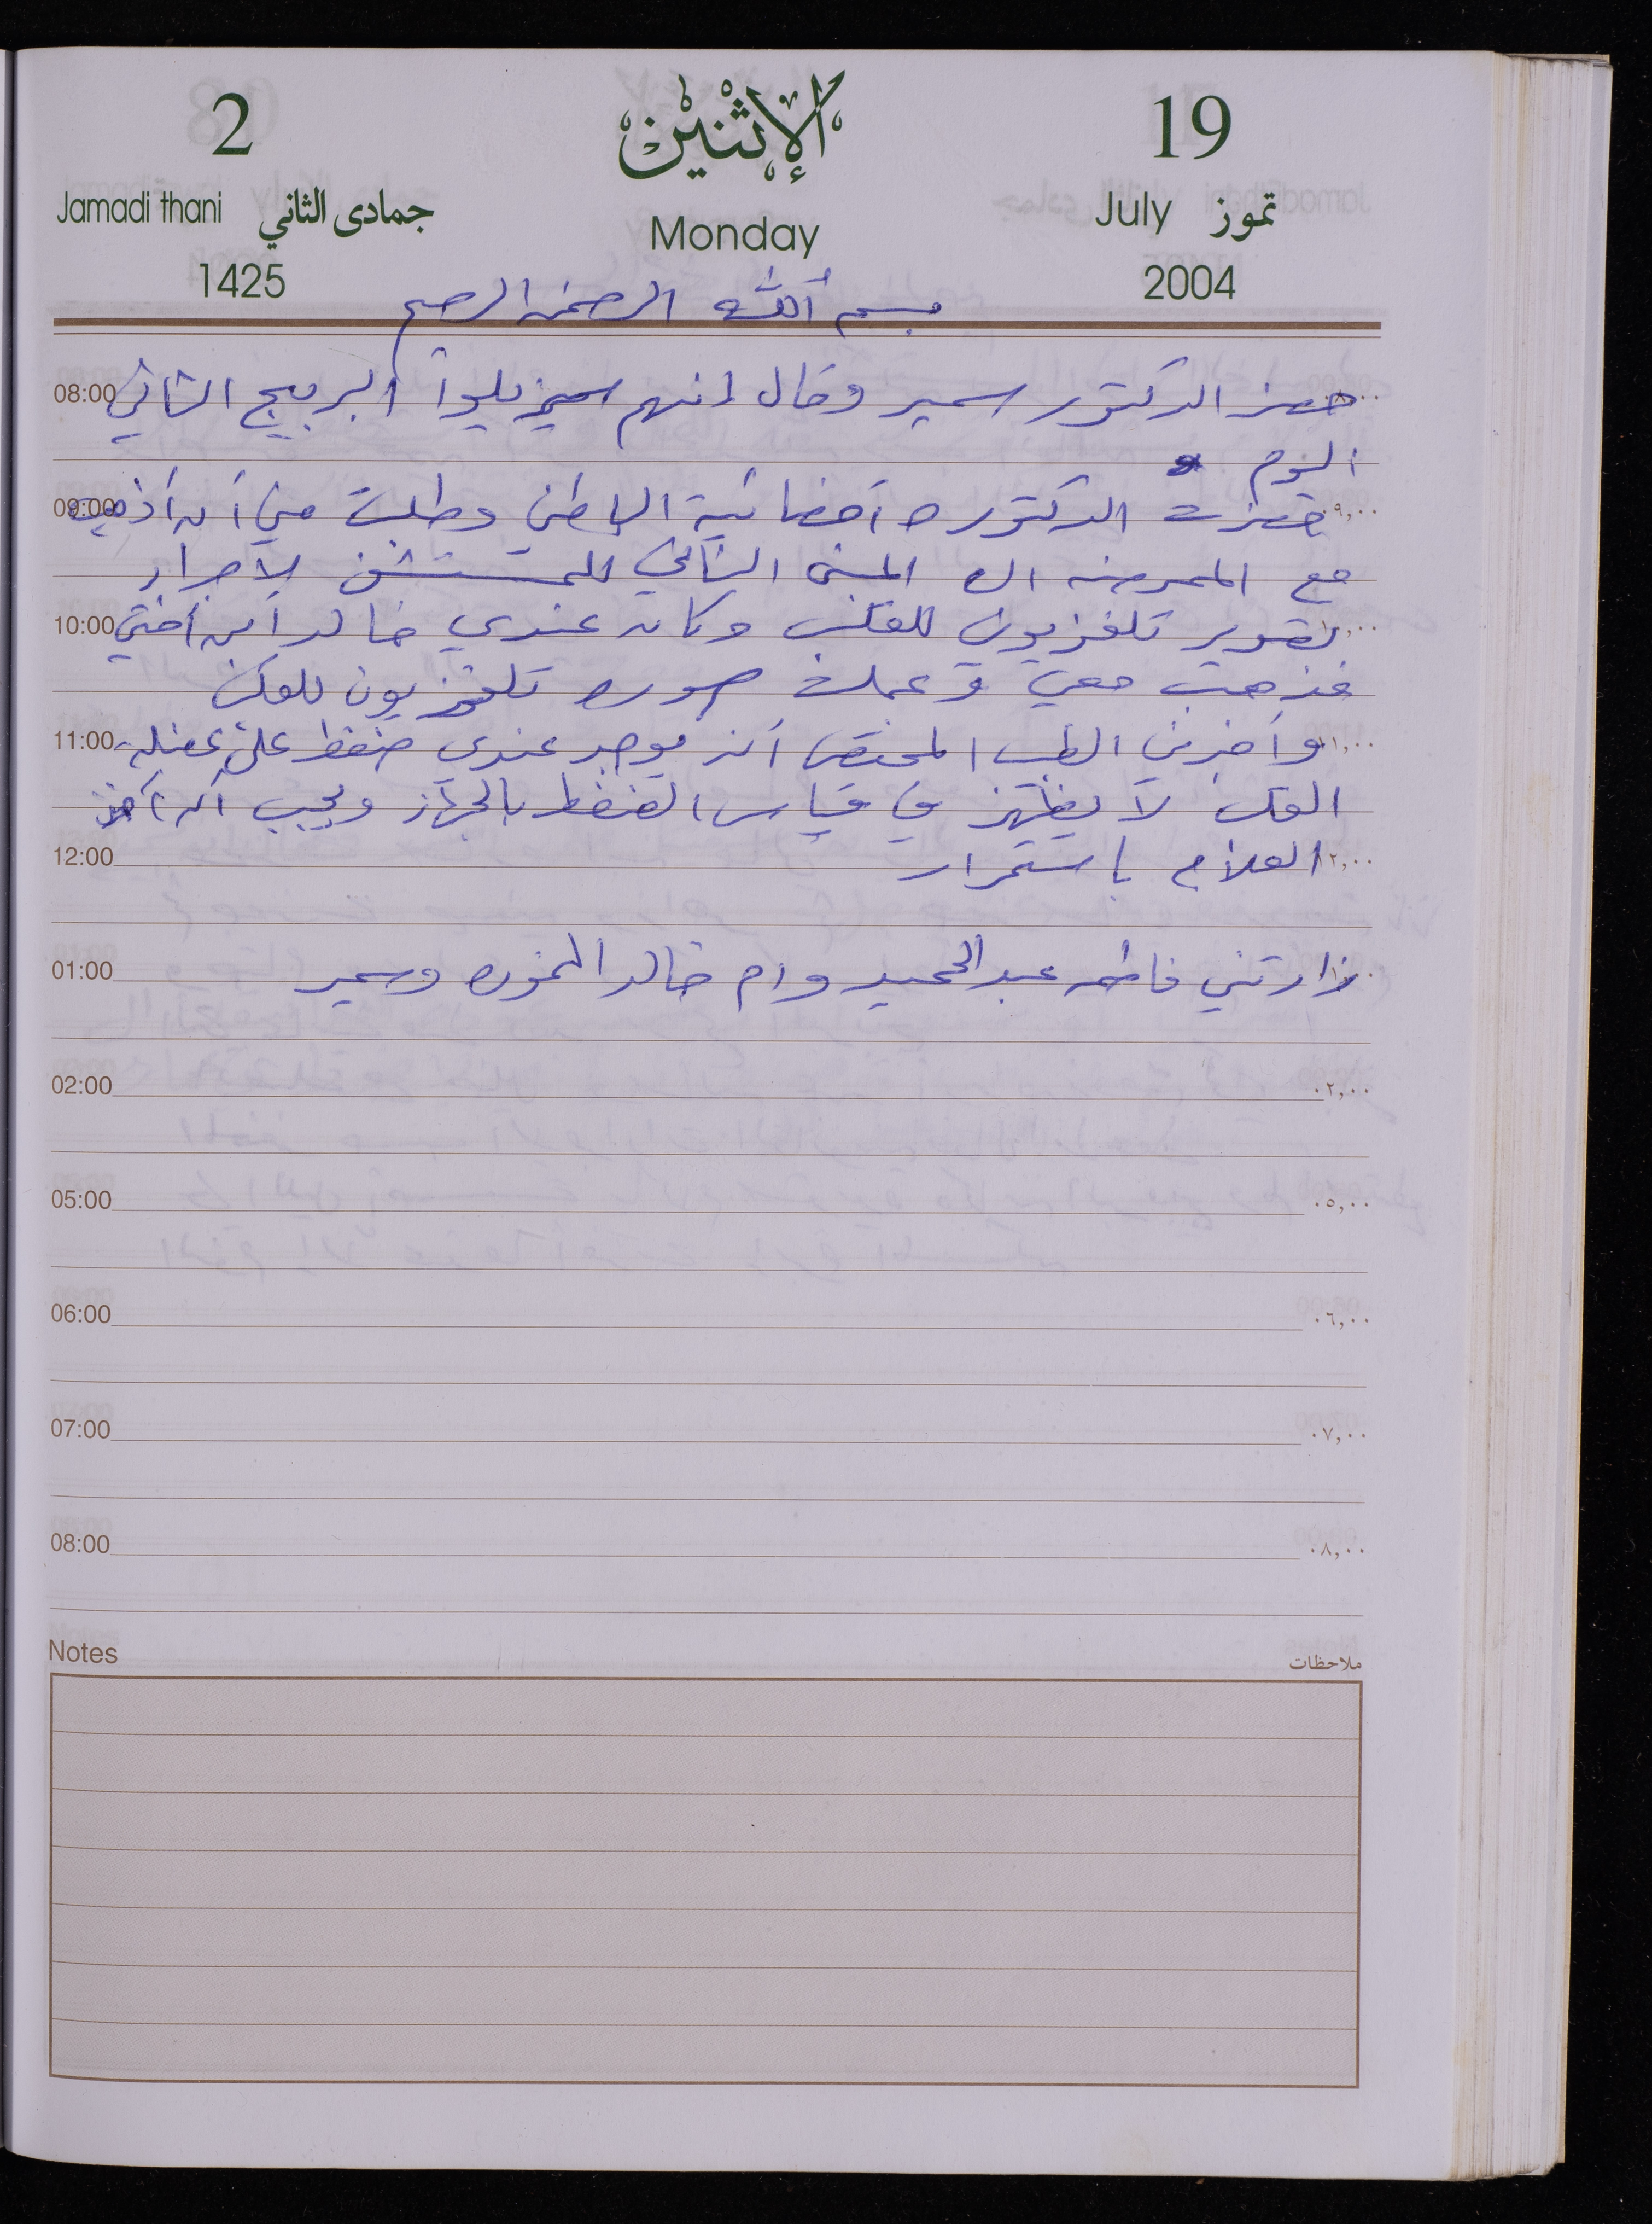 2 الإثنين 19
Jamadi thani جمادى الثاني Monday July تموز
1425 2004
بسم الله الرحمن الرحيم
08:00 حضر الدكتور سمير وقال انهم سيزيلوا البربيج الثاني
اليوم
09:00 ٠٩,٠٠ حضرت الدكتوره أخصائية الباطني وطلبت مني أن أذهب
مع الممرضه الى المبنى الثاني للمستشفى لأجراء
10:00 تصوير تلفزيون للقلب وكان عندي خالد أبن أختي
فذهب معي وعملت صوره تلفزيون للقلب
11:00 ١١,٠٠ وأخبرني الطبيب المختص أنه يوجد عندي ضغط على عضلة
القلب لا يظهر في قياس الضغط بالجهاز ويجب أن آخذ
12:00 ١٢,٠٠ العلاج باستمرار
01:00 زارتني فاطمه عبد الحميد وام خالد وسمير
02:00 ٠٢,٠٠
05:00 ٠٥,٠٠
06:00 ٠٦,٠٠
07:00 ٠٧,٠٠
08:00 ٠٨,٠٠
Notes ملاحظات